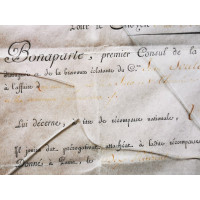 Pour le Citoyen
Bonaparte, premier Consul de la
de la bravoure éclatante du C.en
à l'affaire
Lui décerne, à titre de récompense nationale,
Il jouira des prérogatives attachées à ladite récompense
Donné à Paris, le